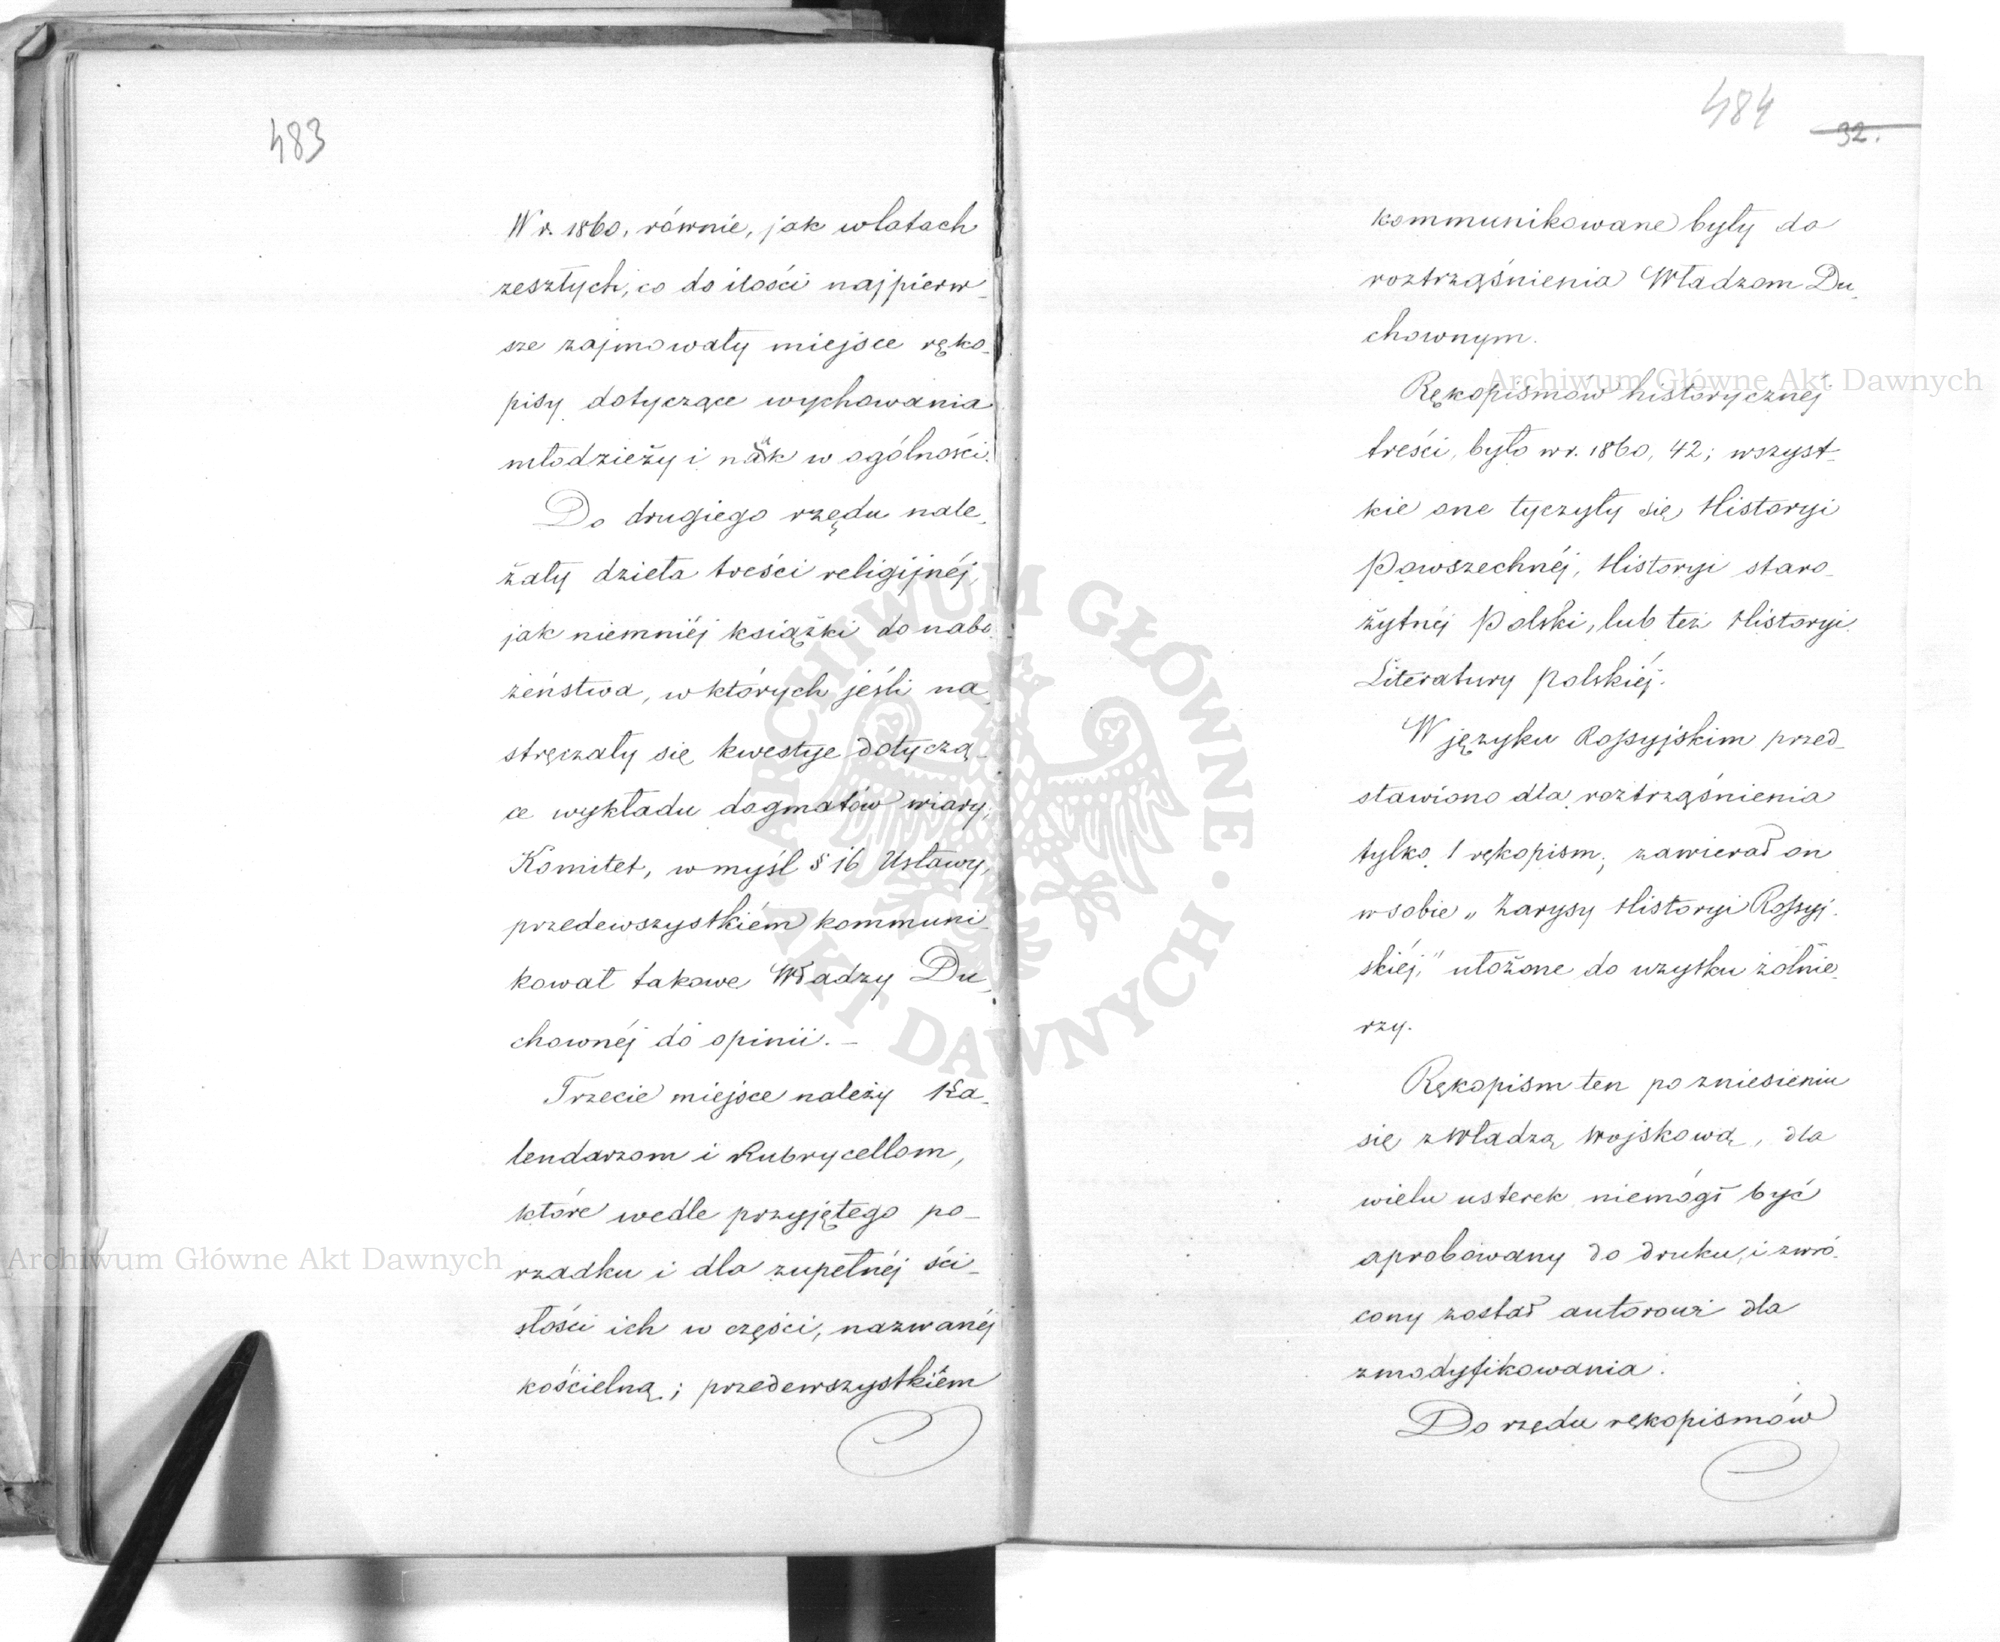 483
W r. 1860, równie, jak w latach
zeszłych, co do ilości najpierw-
sze zajmowały miejsce ręko-
pisy dotyczące wychowania
młodzieży i nauk w ogólności.
Do drugiego rzędu nale-
żały dzieła treści religijnéj,
jak niemniéj książki do nabo-
żeństwa, w których jeśli na-
stręczały się kwestye dotyczą-
ce wykładu dogmatów wiary,
Komitet, w myśl § 16 Ustawy,
przedewszystkiém kommuni-
kował takowe Władzy Du-
chownéj do opinii. —
Trzecie miejsce należy Ka-
lendarzom i Rubrycellom,
które wedle przyjętego po-
rządku i dla zupełnéj ści-
słości ich w części, nazwanéj
kościelną; przedewszystkiém
484
32.
kommunikowane były do
roztrząśnienia Władzom Du-
chownym.
Rękopismów historycznéj
treści, było w r. 1860, 42; wszyst-
kie one tyczyły się Historyi
Powszechnéj, Historyi staro-
żytnéj Polski, lub też Historyi
Literatury polskiéj.
W języku Rossyjskim przed-
stawiono dla roztrząśnienia
tylko 1 rękopism; zawierał on
w sobie „Zarysy Historyi Rossyj-
skiéj," ułożone do użytku żołnie-
rzy.
Rękopism ten po zniesieniu
się z Władzą Wojskową, dla
wielu usterek niemógł być
aprobowany do druku, i zwró-
cony został autorowi dla
zmodyfikowania.
Do rzędu rękopismów
Archiwum Główne Akt Dawnych
Archiwum Główne Akt Dawnych
ARCHIWUM GŁÓWNE AKT DAWNYCH